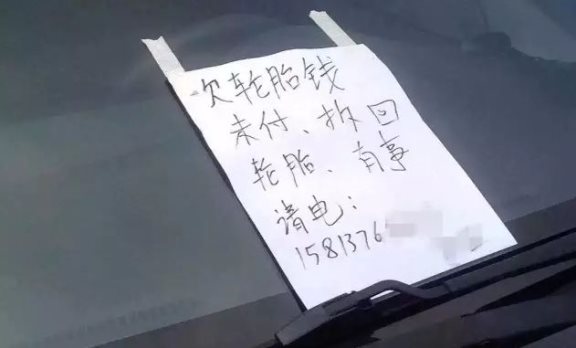 欠轮胎钱
未付、拆回
轮胎、有事
请电：
1581376